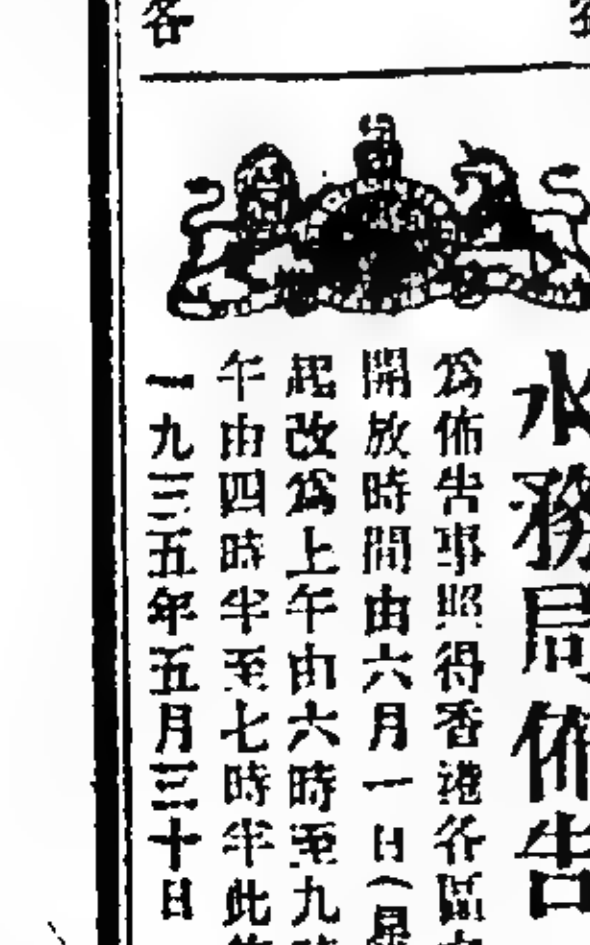 水務局佈告
為佈告事照得香港各區
開放時間由六月一日(星
起改為上午由六時至九時
午由四時半至七時半此
一九三五年五月三十日
客